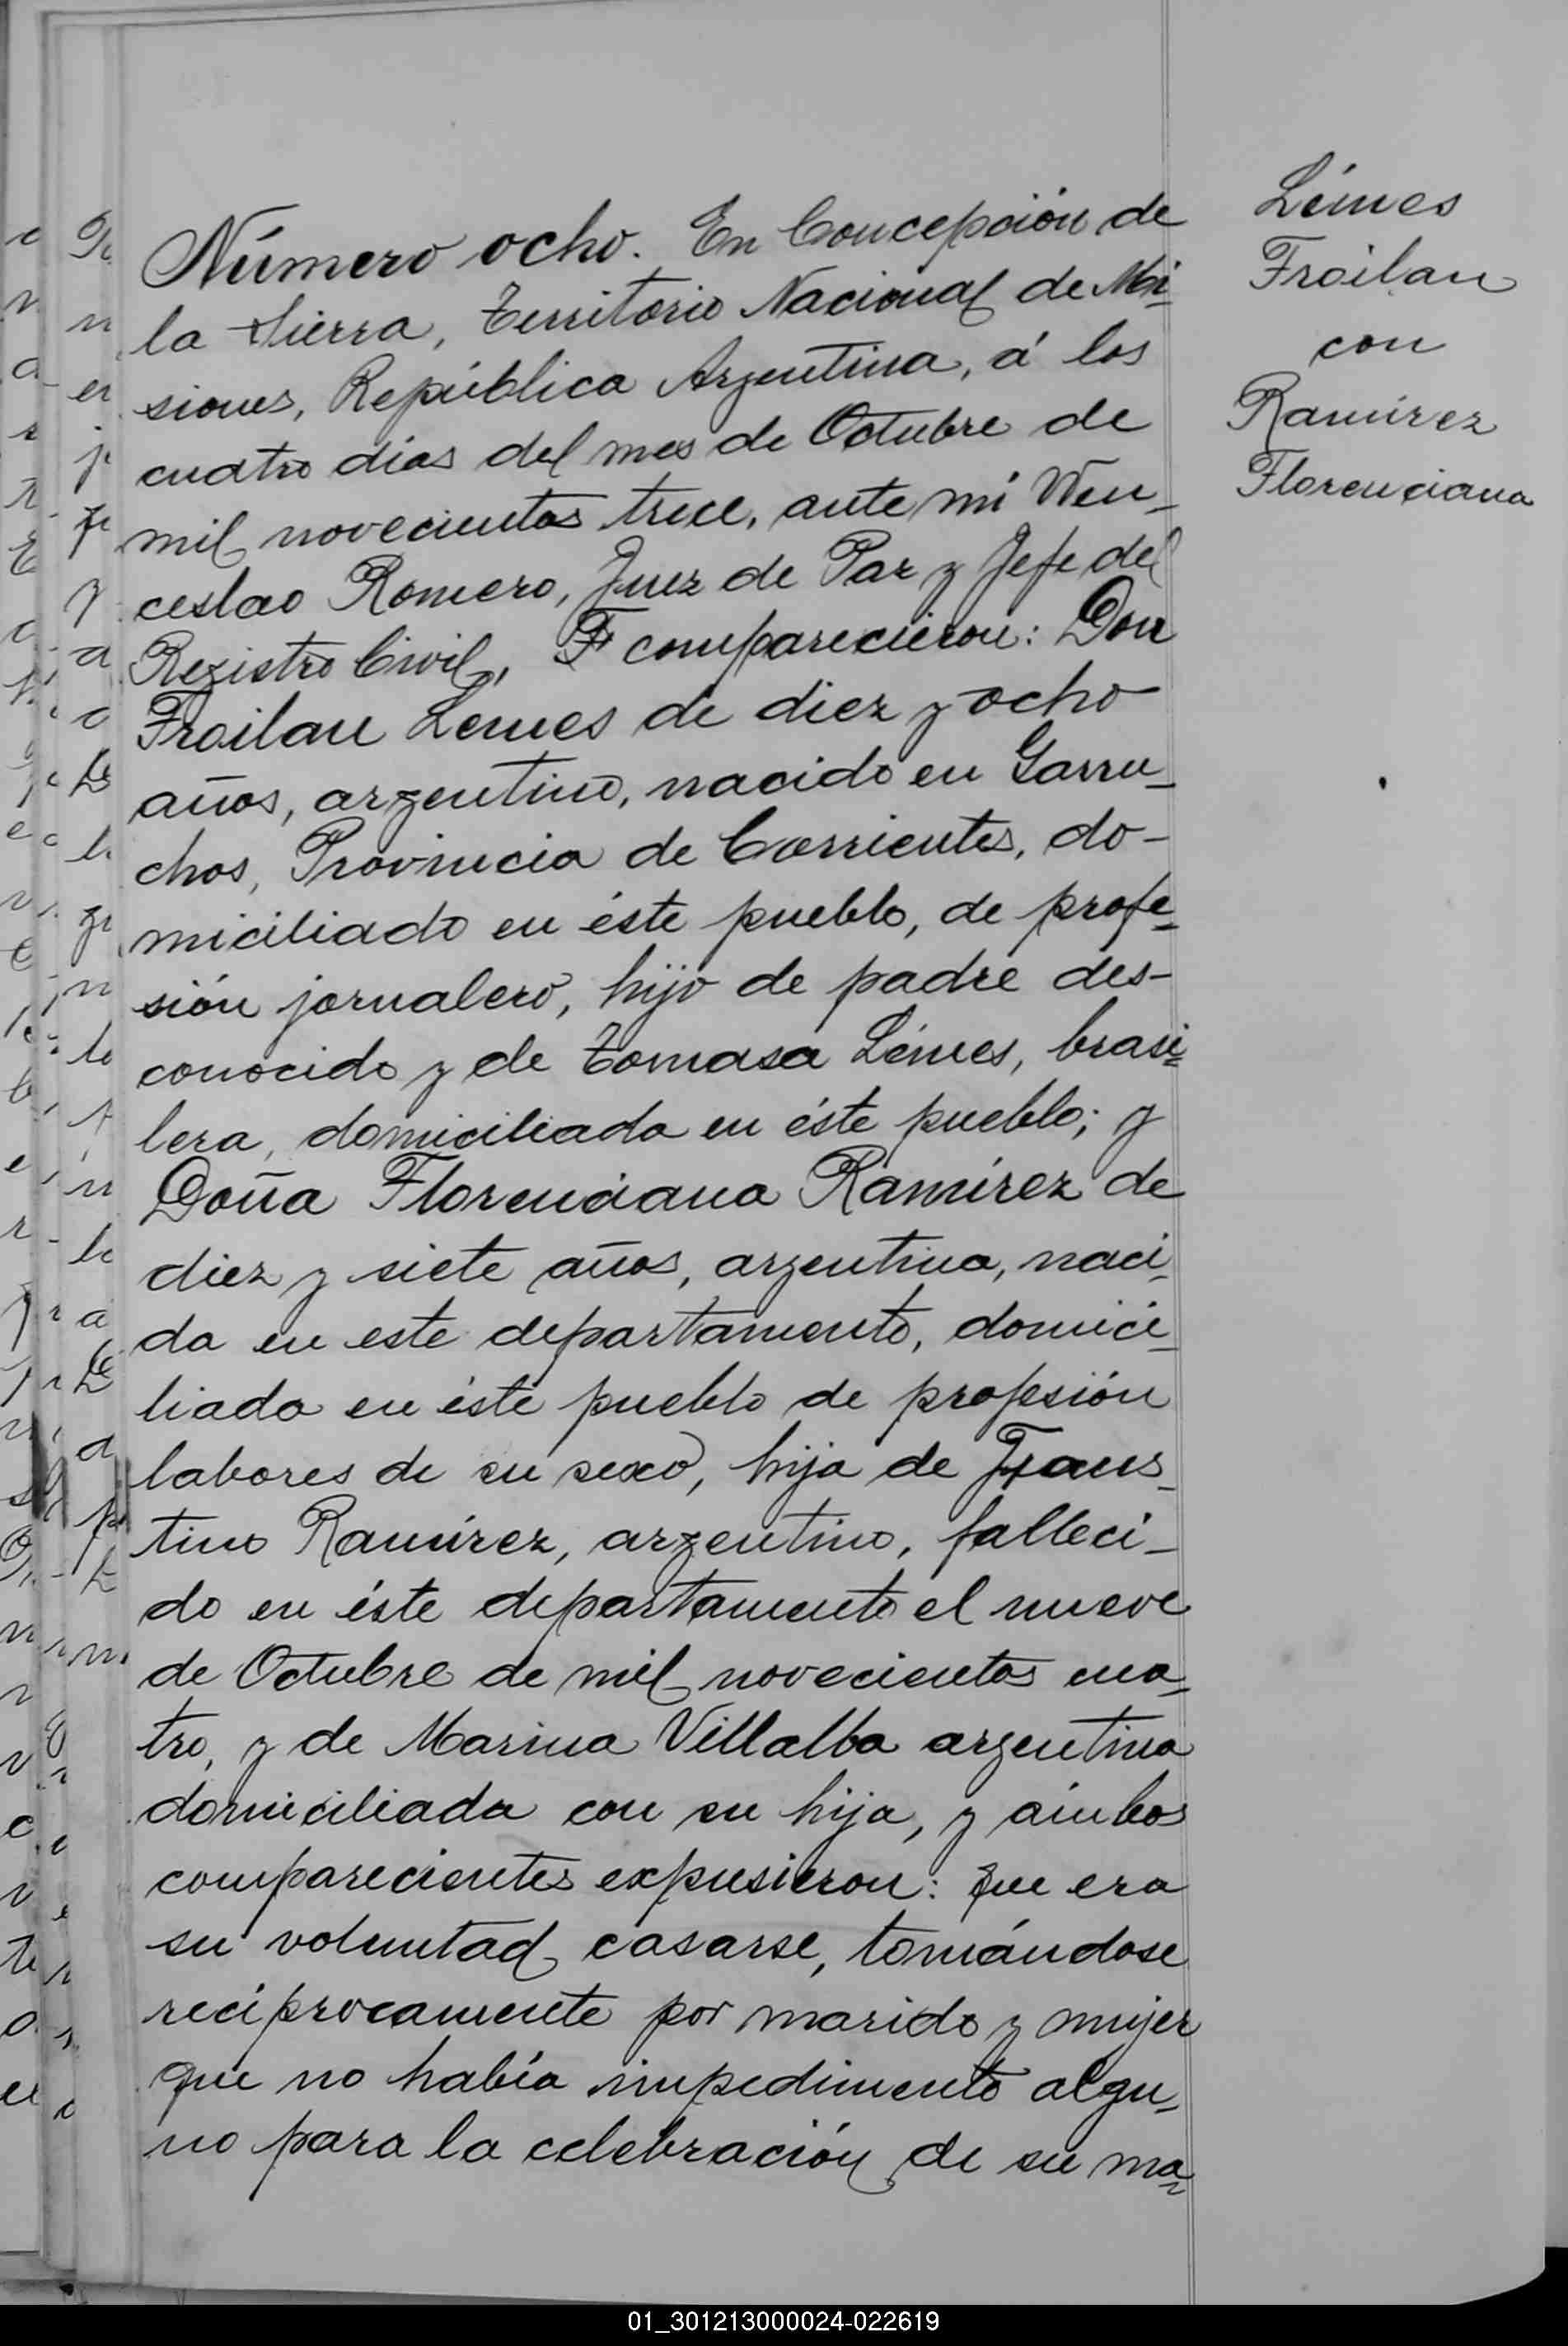 Número ocho. En Concepción de
la Sierra, Territorio Nacional de Mi-
siones, República Argentina, á los
cuatro dias del mes de Octubre de
mil novecientos trece, ante mi Wen-
ceslao Romero, Juez de Paz y Jefe del
Registro Civil, comparecieron: Don
Froilan Lémes de diez y ocho
años, argentino, nacido en Garru-
chos, Provincia de Corrientes, do-
miciliado en éste pueblo, de profe-
sión jornalero, hijo de padre des-
conocido y de Tomasa Lémes, brasi-
lera, domiciliada en éste pueblo; y
Doña Florenciana Ramírez de
diez y siete años, argentina, naci-
da en este departamento, domici-
liada en éste pueblo de profesión
labores de su sexo, hija de Faus-
tino Ramírez, argentino, falleci-
do en éste departamento el nueve
de Octubre de mil novecientos cua-
tro, y de Marina Villalba argentina
domiciliada con su hija, y ámbos
comparecientes expusieron: que era
su voluntad casarse, tomándose
reciprocamente por marido y mujer
que no había impedimento algu-
no para la celebración de su ma-
Lémes
Froilan
con
Ramírez
Florenciana
01_301213000024-022619